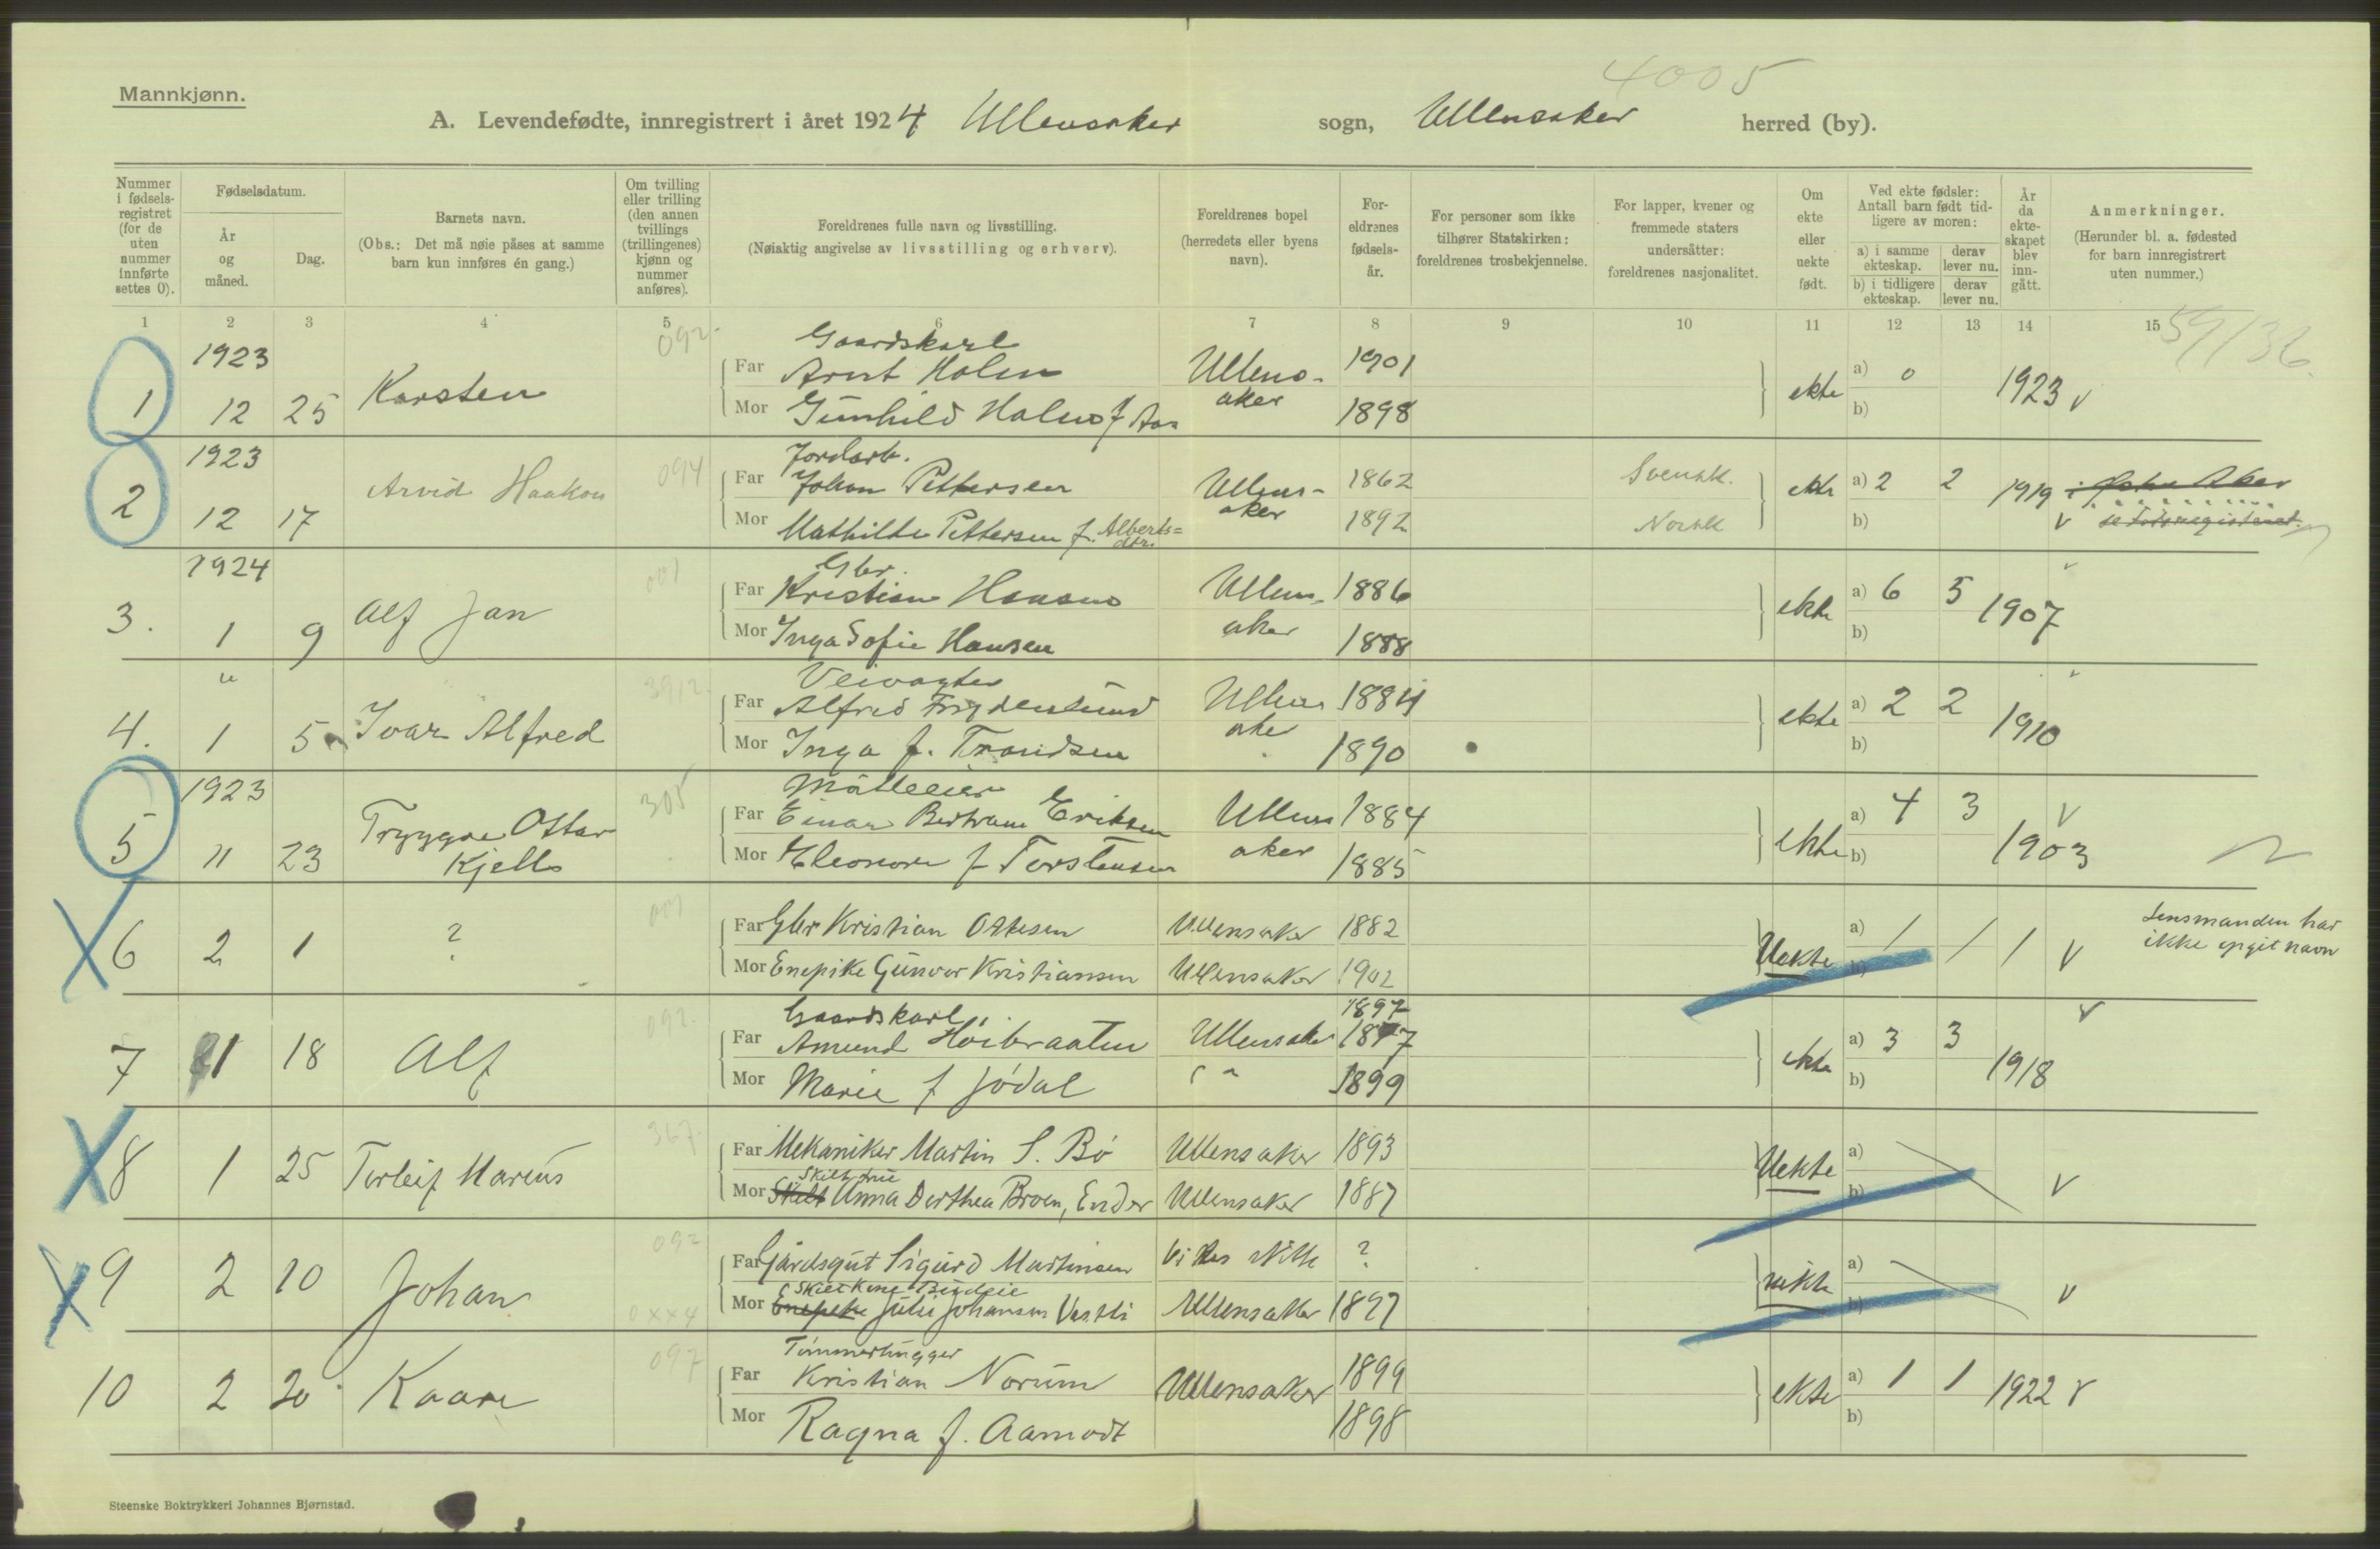 4005
Mannkjønn.
A. Levendefødte, innregistrert i året 1924 Ullensaker sogn, Ullensaker herred (by).
Nummer i fødsels-registret (for de uten nummer innførte settes 0).
Fødselsdatum.
År og måned.
Dag.
Barnets navn.
(Obs.: Det må nøie påses at samme barn kun innføres én gang.)
Om tvilling eller trilling (den annen tvillings (trillingenes) kjønn og nummer anføres).
Foreldrenes fulle navn og livsstilling.
(Nøiaktig angivelse av livsstilling og erhverv).
Foreldrenes bopel (herredets eller byens navn).
For-eldrenes fødsels-år.
For personer som ikke tilhører Statskirken: foreldrenes trosbekjennelse.
For lapper, kvener og fremmede staters undersåtter: foreldrenes nasjonalitet.
Om ekte eller uekte født.
Ved ekte fødsler: Antall barn født tid-ligere av moren:
a) i samme ekteskap. derav lever nu.
b) i tidligere ekteskap. derav lever nu.
År da ekte-skapet blev inn-gått.
Anmerkninger.
(Herunder bl. a. fødested for barn innregistrert uten nummer.)
1 2 3 4 5 6 7 8 9 10 11 12 13 14 15
59/36
1923 092 Gaardskarl
Far Arnt Holm Ullens- 1901 a) 0
1 12 25 Karsten aker ekte 1923 v
Mor Gunhild Holm f Aas 1898 b)
1923 Jordarb.
Arvid Haakon 094 Far Johan Pettersen Ullens- 1862 Svensk. ekte a) 2 2 1919
2 12 17 Mor Mathilde Pettersen f. Alberts=dtr. aker 1892 Norsk b) v
1924 001 Gbr.
Far Kristian Hansen Ullens- 1886 a) 6 5
3. 1 9 Alf Jan aker ekte 1907
Mor Inga Sofie Hansen 1888 b)
" 3912 Veivogter
Far Alfred Frydenlund Ullens 1884 a) 2 2
4. 1 5 Ivar Alfred aker ekte 1910
Mor Inga f. Trondsen 1890 b)
1923 305
Far Einar Bertram Eriksen Ullens 1884 a) 4 3 v
5 11 23 Tryggve Ottar Kjell aker ekte 1903
Mor Eleonore f Torstensen 1885 b)
001 Far Gbr Kristian Ottesen Ullensaker 1882 a) / / / Lensmanden har
6 2 1 ? Uekte v ikke opgit navn
Mor Enepike Gunvor Kristiansen Ullensaker 1902 b)
092 Gaardskarl 1897 v
Far Amund Høibraaten Ullensaker 1877 a) 3 3
7 1 18 Alf ekte 1918
Mor Marie f Jødal " 1899 b)
367 Far Mekaniker Martin S. Bø Ullensaker 1893 a)
8 1 25 Torleif Marius Skilt frue Uekte v
Mor Skilt Anna Dorthea Broen, Ender Ullensaker 1887 b)
092 Far Gårdsgut Sigurd Martinsen Vides ikke ? a)
9 2 10 Johan Skilt Kone Budeie uekte v
0xx4 Mor Enepike Julie Johansen Vestli Ullensaker 1897 b)
097 Tømmerhugger
Far Kristian Norum 1899 a) 1 1
10 2 20 Kaare Ullensaker ekte 1922 v
Mor Ragna f. Aamodt 1898 b)
Steenske Boktrykkeri Johannes Bjørnstad.